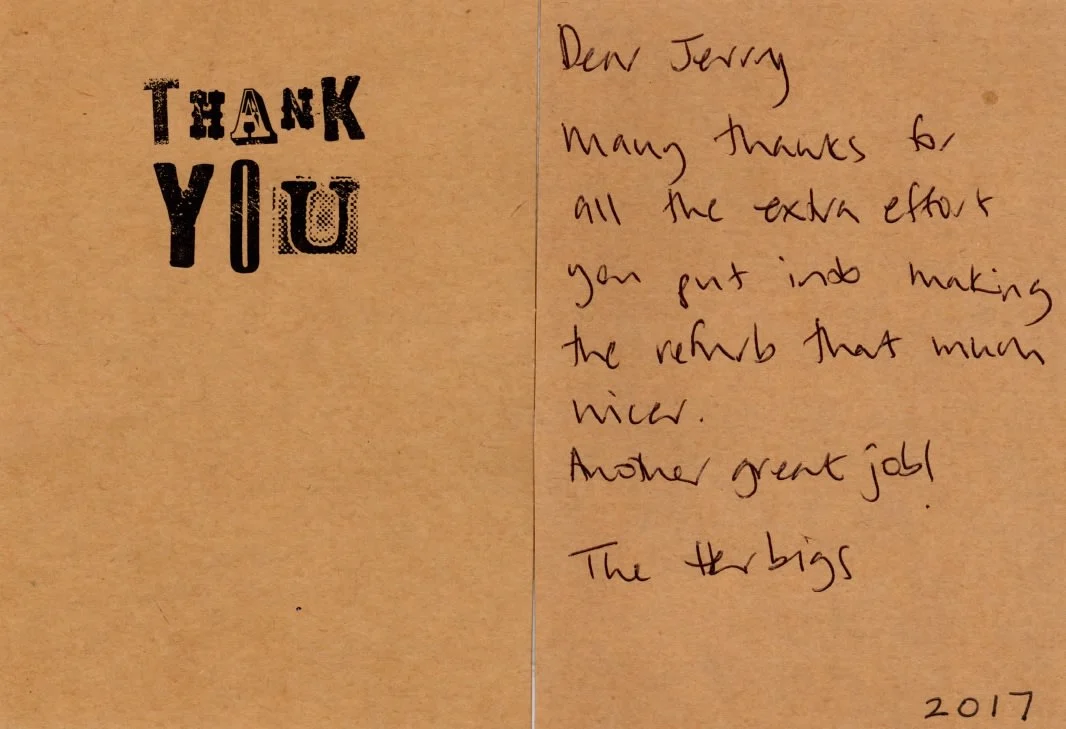 THANK
YOU
Dear Jerry
Many thanks for
all the extra effort
you put into making
the refurb that much
nicer.
Another great job!
The Herbigs
2017